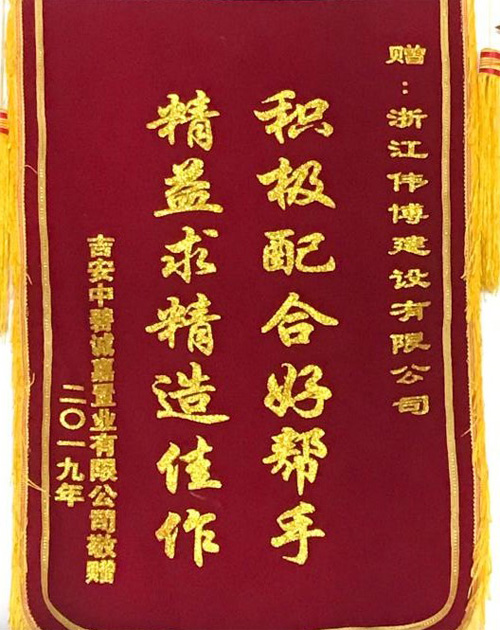 赠：浙江伟博建设有限公司
积极配合好帮手
精益求精造佳作
吉安中梁诚嘉置业有限公司敬赠
二〇一九年